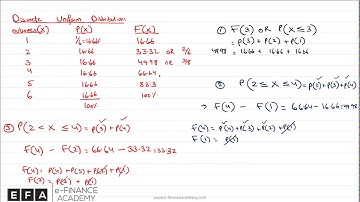 Discrete Uniform Distribution
outcomes(x) P(x) F(x)
1 1/6 = 16.66 16.66
2 16.66 33.32 OR 2/6
3 16.66 49.98 OR 3/6
4 16.66 66.64
5 16.66 83.3
6 16.66 100%
100%
① F(3) OR P(x≤3)
= P(3) + P(2) + P(1)
49.98 = 16.66 + 16.66 + 16.66
② P(2≤x≤4) = P(2)+P(3)+P(4)
→ F(4) - F(1) = 66.64-16.66=49.98
F(4) = P(4)+P(3)+P(2)+P(1)
F(1) = P(1)
③ P(2<x≤4) = P(3)+P(4)
F(4) - F(2) = 66.64 - 33.32 = 33.32
F(4) = P(4)+P(3)+P(2)+P(1)
F(2) = P(2)+P(1)
EFA e-FINANCE ACADEMY
www.e-financeacademy.com